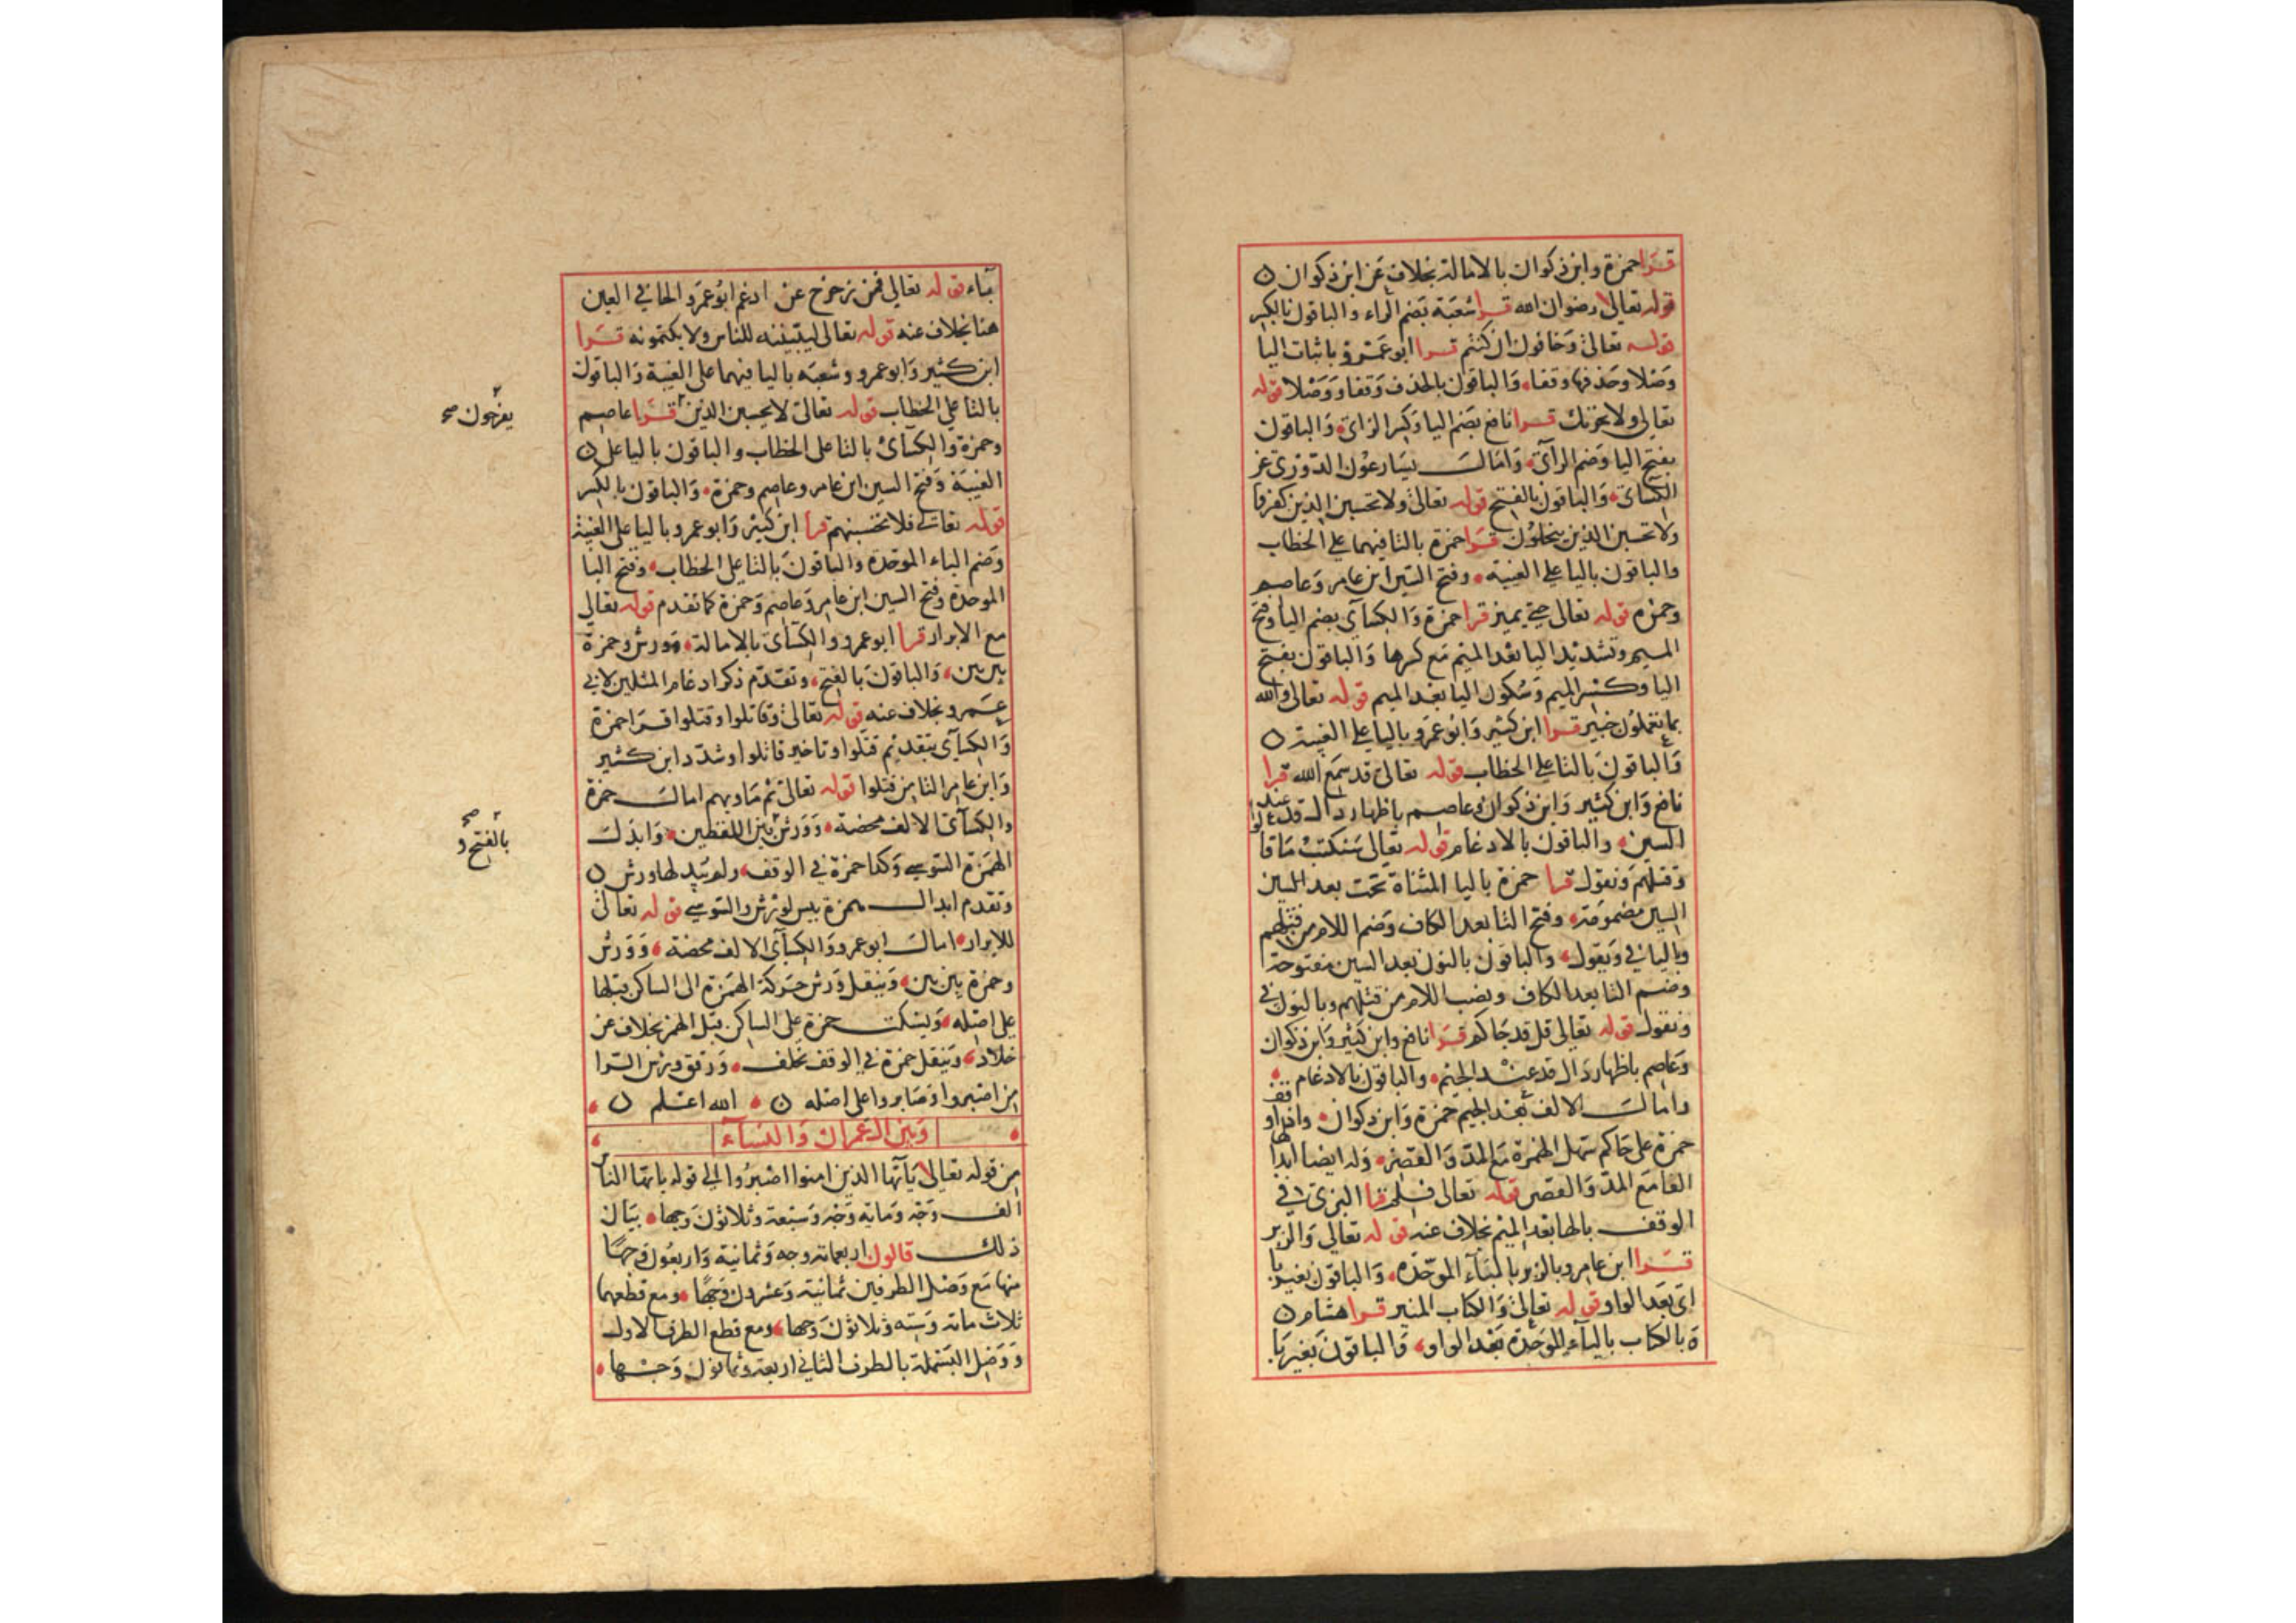 قرا حمزة وابن ذكوان بالامالة بخلاف عن ابن ذكوان
قوله تعالى رضوان الله قرا شعبة بضم الراء والباقون بالكسر
قوله تعالى وخافون ان كنتم قرا ابو عمرو باثبات اليا
وصلا وحذفها وقفا والباقون بالحذف وقفا ووصلا قوله
تعالى ولا يحزنك قرا نافع بضم اليا وكسر الزاى والباقون
بفتح اليا وضم الزاى وامال يسارعون الدورى عن
الكسائى والباقون بالفتح قوله تعالى ولا تحسبن الذين كفروا
ولا تحسبن الذين يبخلون قرا حمزة بالتا فيهما على الخطاب
والباقون باليا على الغيبة وفتح السين ابن عامر وعاصم
وحمزه قوله تعالى حتى يميز قرا حمزة والكسآى بضم اليا وفتح
الميم وتشديد اليا بعد الميم مع كسرها والباقون بفتح
اليا وكسر الميم وسكون اليا بعد الميم قوله تعالى والله
بما تعملون خبير قرا ابن كثير وابو عمرو باليا على الغيبة
والباقون بالتا على الخطاب قوله تعالى قد سمع الله قرا
نافع وابن كثير وابن ذكوان وعاصم باظهار دال قد عند
السين والباقون بالادغام قوله تعالى سنكتب ما قالوا
وقتلهم ونقول قرا حمزة باليا المثناة تحت بعد السين
السين مضمومة وفتح التا بعد الكاف وضم اللام من قتلهم
وباليا فى ويقول والباقون بالنون بعد السين مفتوحة
وضم التا بعد الكاف ونصب اللام من قتلهم وبالنون فى
ونقول قوله تعالى قل قد جاكم قرا نافع وابن كثير وابن ذكوان
وعاصم باظهار دال قد عند الجيم والباقون بالادغام
وامال الالف بعد الجيم حمزة وابن ذكوان واذا وقف
حمزة على جاكم سهل الهمزة مع المد والقصر وله ايضا ابدالها
الفا مع المد والقصر قوله تعالى فلم قرا البزى فى
الوقف بالها بعد الميم بخلاف عنه قوله تعالى والزبر
قرا ابن عامر وبالزبر بالبآء الموحده والباقون بغير با
اى بعد الواو قوله تعالى والكتاب المنير قرا هشام
وبالكتاب بالبآء الموحدة بعد الواو والباقون بغير با
بآء قوله تعالى فمن زحزح عن ادغم ابو عمرو الحا فى العين
هنا بخلاف عنه قوله تعالى ليبيننه للناس ولا يكتمونه قرا
ابن كثير وابو عمرو وشعبه باليا فيهما على الغيبة والباقون
بالتا على الخطاب قوله تعالى لا يحسبن الذين قرا عاصم
يفرحون صح
وحمزة والكسآئى بالتا على الخطاب والباقون باليا على
الغيبة وفتح السين ابن عامر وعاصم وحمزة والباقون بالكسر
قوله تعالى فلا تحسبنهم قرا ابن كثير وابو عمرو باليا على الغيبة
وضم الباء الموحده والباقون بالتا على الخطاب وفتح البا
الموحدة وفتح السين ابن عامر وعاصم وحمزة كما تقدم قوله تعالى
مع الابرار قرا ابو عمرو والكسآى بالامالة وورش وحمزة
بين بين والباقون بالفتح وتقدم ذكر ادغام المثلين لابى
عمرو بخلاف عنه قوله تعالى وقاتلوا وقتلوا قرا حمزة
والكسآى بتقديم قتلوا وتاخير قاتلوا وشدد ابن كثير
وابن عامر التا من قتلوا قوله تعالى ثم ماويهم امال حمزة
والكسآى الالف محضة وورش بين اللفظين وابدل
بالفتح و صح
الهمزة السوسى وكذا حمزة فى الوقف ولم يبدلها ورش
وتقدم ابدال همزة بيس لورش والسوسى قوله تعالى
للابرار امال ابو عمرو والكسآى الالف محضة وورش
وحمزة بين بين وينقل ورش حركة الهمزة الى الساكن قبلها
على اصله ويسكت حمزة على الساكن قبل الهمز بخلاف عن
خلاد وينقل حمزة فى الوقف بخلف ورقق ورش الرا
من اصبروا وصابروا على اصله الله اعلم
وبين ال عمران والنسآء
من قوله تعالى يآيها الذين امنوا اصبروا الى قوله يايها الناس
الف وجه ومايه وجه وسبعة وثلاثون وجها بيان
ذلك قالون اربعماية وجه وثمانية واربعون وجها
منها مع وصل الطرفين ثمانية وعشرون وجها ومع قطعهما
ثلاث ماية وسته وثلاثون وجها ومع قطع الطرف الاول
ووصل البسملة بالطرف الثانى اربعة وثمانون وجها